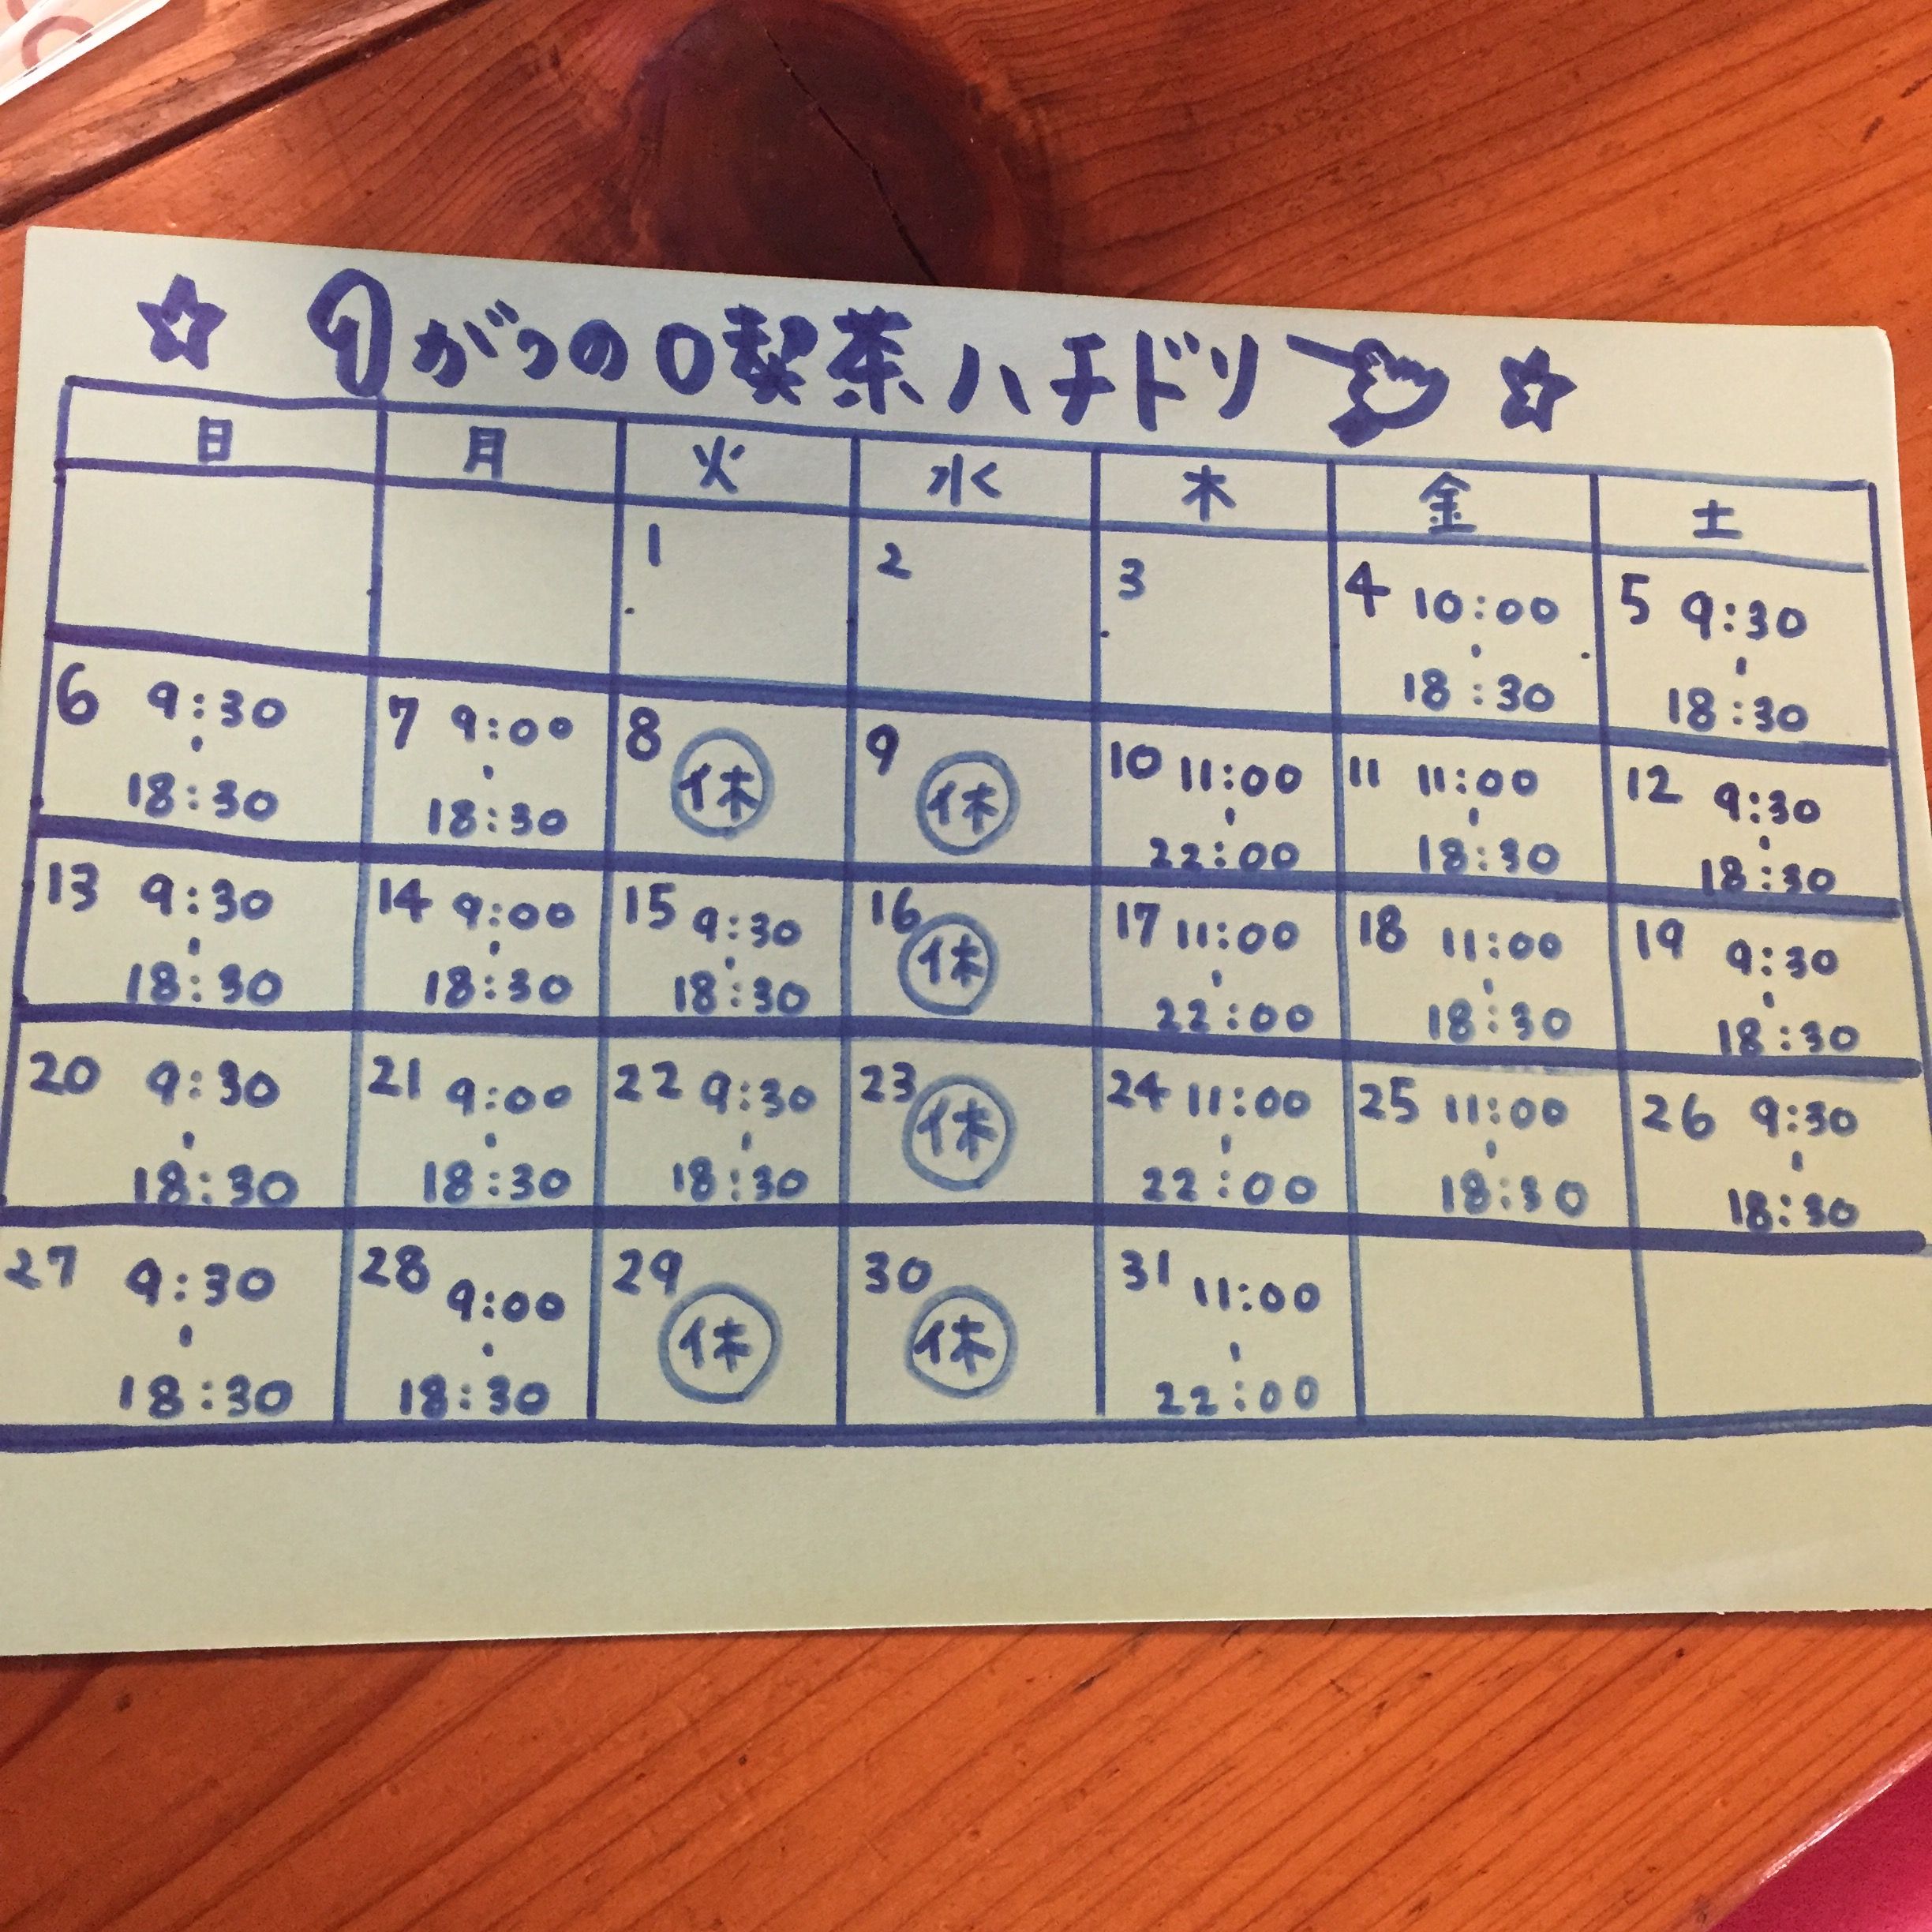 1がつの喫茶ハチドリ
日 月 火 水 木 金 土
1 2 3 4 10:00 5 9:30
18:30 18:30
6 9:30 7 9:00 8 休 9 休 10 11:00 11 11:00 12 9:30
18:30 18:30 22:00 18:30 18:30
13 9:30 14 9:00 15 9:30 16 休 17 11:00 18 11:00 19 9:30
18:30 18:30 18:30 22:00 18:30 18:30
20 9:30 21 9:00 22 9:30 23 休 24 11:00 25 11:00 26 9:30
18:30 18:30 18:30 22:00 18:30 18:30
27 9:30 28 9:00 29 休 30 休 31 11:00
18:30 18:30 22:00